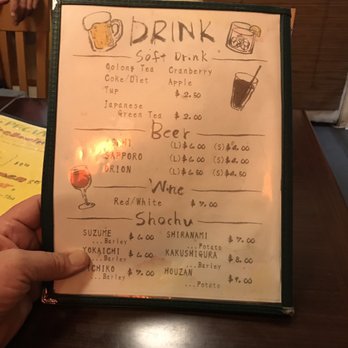 DRINK
Soft Drink
Oolong Tea Cranberry
Coke/Diet Apple
7up $2.50
Japanese
Green Tea $2.00
Beer
(L)$6.00 (S)
SAPPORO (L)$6.00 (S)
ORION (L)$6.50 (S)
Wine
Red/White $7.00
Shochu
SUZUME $6.00 SHIRANAMI $7.00
...Barley ...Potato
YOKAICHI $6.00 KAKUSHIGURA $8.00
...Barley ...Barley
ICHIKO $7.00 HOUZAN $9.00
...Barley ...Potato